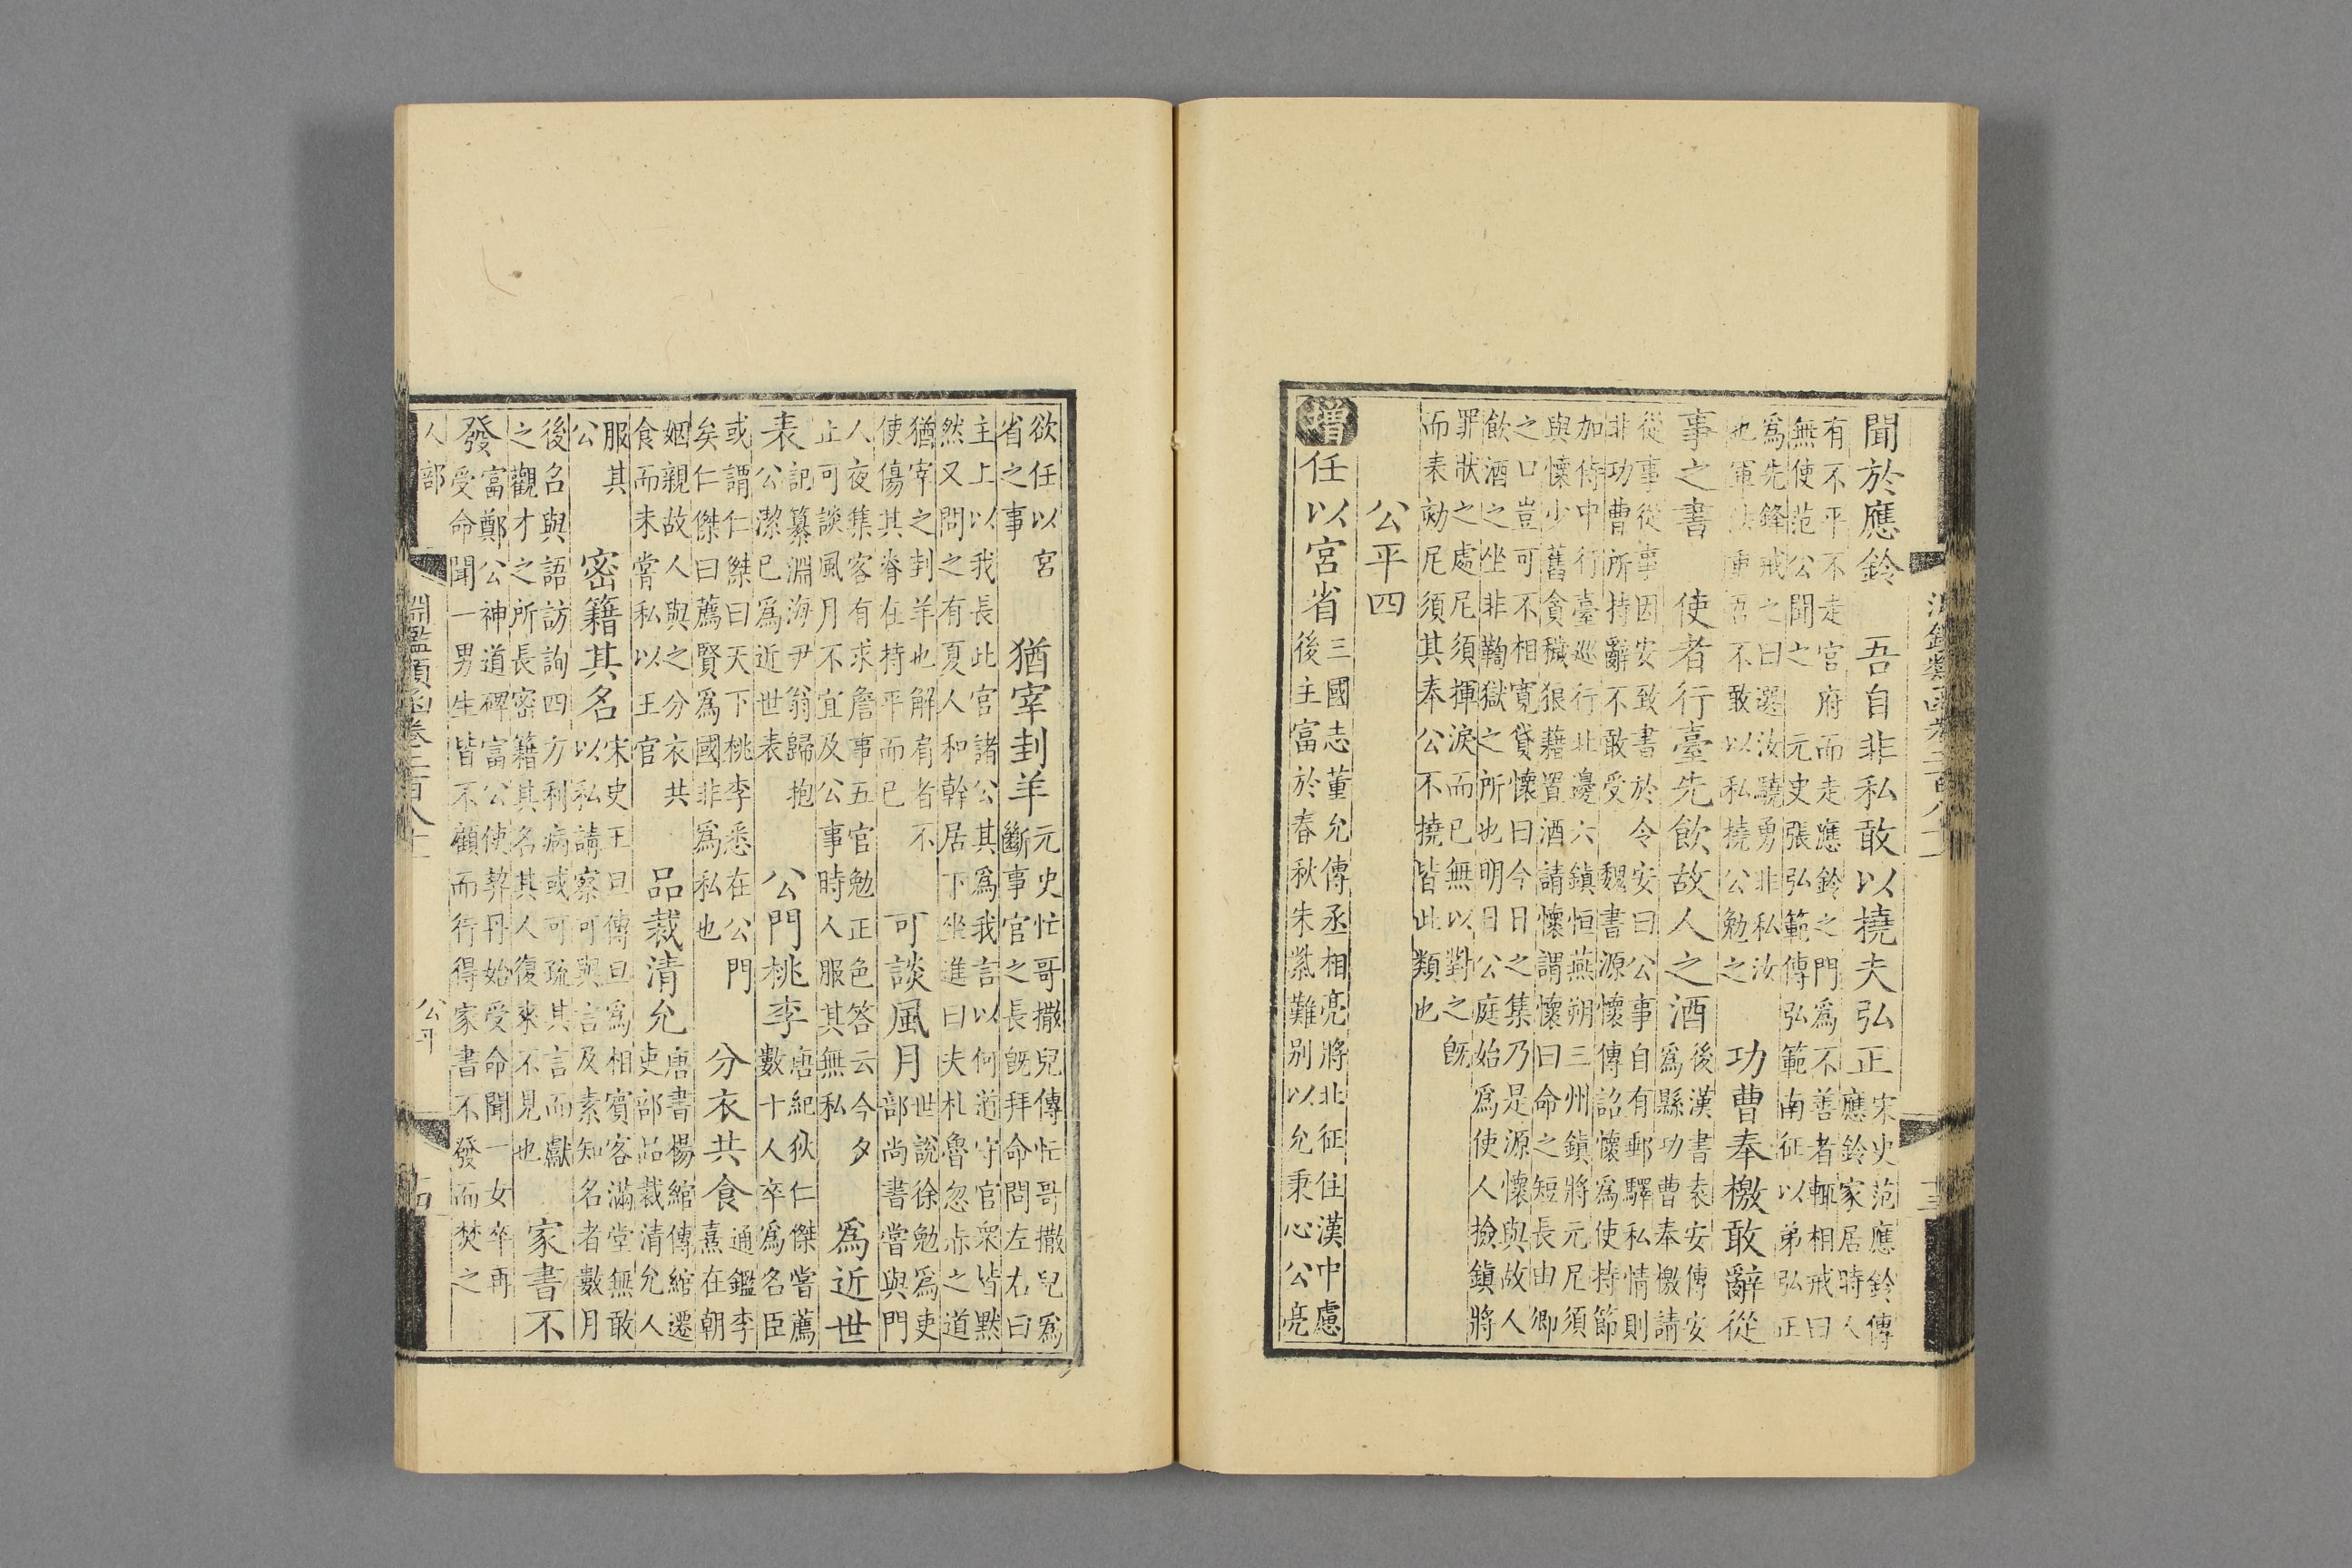 聞於應鈴　吾自非私敢以撓夫弘正宋史范應鈴傳
應鈴家居時人
有不平不走官府而走應鈴之門為不善者輒相戒曰
無使范公聞之　元史張弘範傳弘範南征以弟弘正
為先鋒戒之曰選汝驍勇非私汝
也軍法重吾不敢以私撓公勉之　功曹奉檄敢辭從
事之書　使者行臺先飲故人之酒後漢書袁安傳安
為縣功曹奉檄請
從事從事因安致書於令安曰公事自有郵驛私情則
非功曹所持辭不敢受　魏書源懷傳詔懷為使持節
加侍中行臺巡行北邊六鎮恒燕朔三州鎮將元尼須
與懷少舊貪穢狼藉置酒請懷謂懷曰命之短長由卿
之口豈可不相寬貸懷曰今日之集乃是源懷與故人
飲酒之坐非鞫獄之所也明日公庭始為使人撿鎮將
罪狀之處尼須揮淚而已無以對之既
而表劾尼須其奉公不撓皆此類也
公平四
增任以宮省三國志董允傳丞相亮將北征住漢中慮
後主富於春秋朱紫難別以允秉心公亮
欲任以宮
省之事　猶宰刲羊元史忙哥撒兒傳忙哥撒兒為
斷事官之長既拜命問左右曰
主上以我長此官諸公其為我言以何道守官衆皆默
然又問之有夏人和斡居下坐進曰夫札魯忽赤之道
猶宰之刲羊也解肩者不
使傷其脊在持平而已　可談風月世說徐勉為吏
部尚書嘗與門
人夜集客有求詹事五官勉正色答云今夕
止可談風月不宜及公事時人服其無私　為近世
表記纂淵海尹翁歸抱
公潔已為近世表　公門桃李唐紀狄仁傑嘗薦
數十人卒為名臣
或謂仁傑曰天下桃李悉在公門
矣仁傑曰薦賢為國非為私也　分衣共食通鑑李
熹在朝
姻親故人與之分衣共
食而未嘗私以王官　品裁清允唐書楊綰傳綰遷
吏部品裁清允人
服其
公　密籍其名宋史王旦傳旦為相賓客滿堂無敢
以私請察可與言及素知名者數月
後召與語訪詢四方利病或可疏其言而獻
之觀才之所長密籍其名其人復來不見也　家書不
發富鄭公神道碑富公使契丹始受命聞一女卒再
受命聞一男生皆不顧而行得家書不發而焚之
人部
淵鑑類函卷二百八十
公平